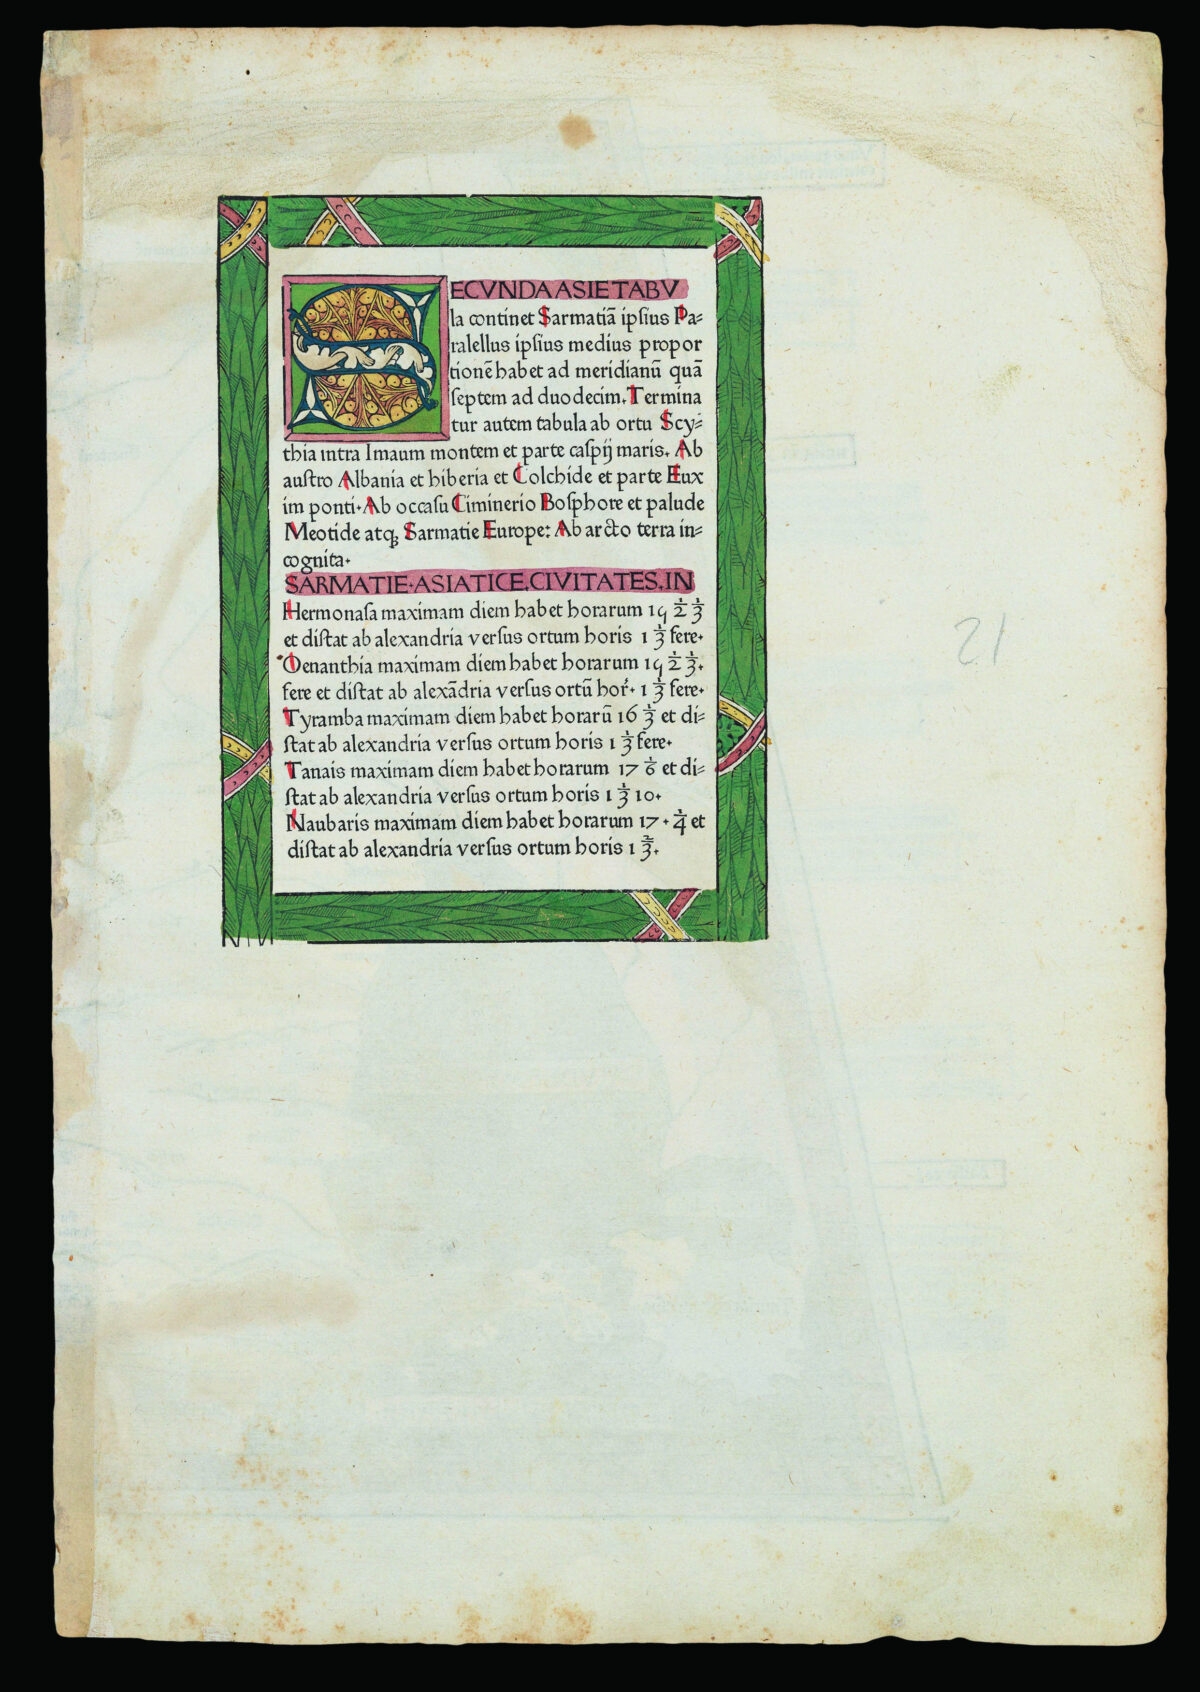 SECVNDA ASIE TABV
la continet Sarmatiā ipſius Pa⸗
ralellus ipſius medius propor
tionē habet ad meridianū quā
ſeptem ad duodecim. Termina
tur autem tabula ab ortu Scy⸗
thia intra Imaum montem et parte caſpij maris. Ab
auſtro Albania et hiberia et Colchide et parte Eux
im ponti. Ab occaſu Ciminerio Boſphore et palude
Meotide atqꝫ Sarmatie Europe: Ab arcto terra in⸗
cognita.
SARMATIE.ASIATICE.CIVITATES.IN
Hermonaſa maximam diem habet horarum 19 1/2 1/3
et diſtat ab alexandria verſus ortum horis 1 1/3 fere.
Oenanthia maximam diem habet horarum 19 1/2 1/3.
fere et diſtat ab alexādria verſus ortū hor. 1 1/3 fere.
Tyramba maximam diem habet horarū 16 1/3 et di⸗
ſtat ab alexandria verſus ortum horis 1 1/3 fere.
Tanais maximam diem habet horarum 17 1/6 et di⸗
ſtat ab alexandria verſus ortum horis 1 1/3 10.
Naubaris maximam diem habet horarum 17. 1/4 et
diſtat ab alexandria verſus ortum horis 1 2/3.
21